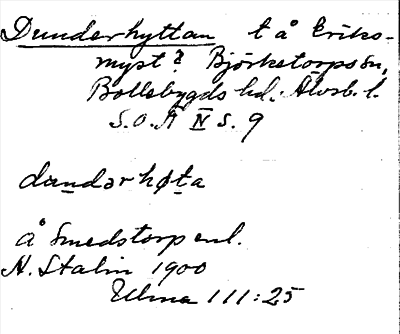 Dunderhyttan t å Eriks-
myst? Björketorps sn,
Bollebygds hd. Älvsb. l.
S.O.Ä IV s. 9
dundərhøta
å Smedstorp enl.
N. Stalin 1900
Ulma 111:25